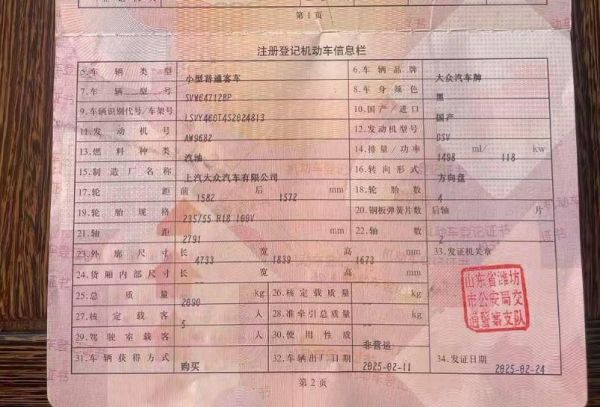 第 1 页
注册登记机动车信息栏
5.车辆类型 小型普通客车 6.车辆品牌 大众汽车牌
7.车辆型号 SVW64712BP 8.车身颜色 黑
9.车辆识别代号/车架号 LSVY460T4S2024813 10.国产/进口 国产
11.发动机号 AW9682 12.发动机型号 DSV
13.燃料种类 汽油 14.排量/功率 1498 ml/ 118 kw
15.制造厂名称 上汽大众汽车有限公司 16.转向形式 方向盘
17.轮距 前 1582 后 1572 mm 18.轮胎数 4
19.轮胎规格 235/55 R18 100V 20.钢板弹簧片数 后轴 片
21.轴距 2791 mm 22.轴数 2
23.外廓尺寸 长 4733 宽 1839 高 1673 mm 33.发证机关章
24.货厢内部尺寸 长 宽 高 mm
山东省潍坊
市公安局交
通警察支队
25.总质量 2090 kg 26.核定载质量 kg
27.核定载客 5 人 28.准牵引总质量 kg
29.驾驶室载客 人 30.使用性质 非营运
31.车辆获得方式 购买 32.车辆出厂日期 2025-02-11 34.发证日期 2025-02-24
第 2 页